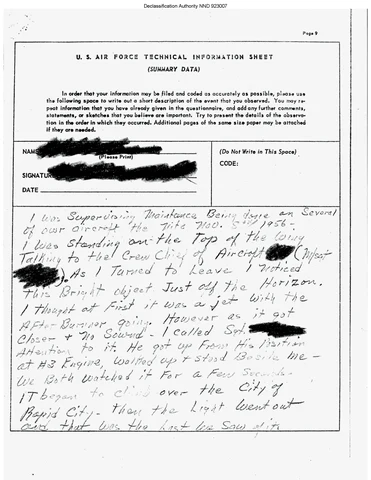 Declassification Authority NND 923007
Page 9
U. S. AIR FORCE TECHNICAL INFORMATION SHEET
(SUMMARY DATA)
In order that your information may be filed and coded as accurately as possible, please use
the following space to write out a short description of the event that you observed. You may re-
peat information that you have already given in the questionnaire, and add any further comments,
statements, or sketches that you believe are important. Try to present the details of the observa-
tion in the order in which they occurred. Additional pages of the same size paper may be attached
if they are needed.
NAME
(Please Print)
SIGNATUR
DATE
(Do Not Write in This Space)
CODE:
I was Supervising Maintance Being done on Several
of our aircraft the Nite Nov. 1956-
I was Standing on the Top of the Wing
Talking to the Crew Chief of Aircraft (M/sgt
). As I Turned to Leave I Noticed
This Bright object Just off the Horizon.
I thought at First it was a jet With the
After Burner going. However as it got
Closer + No Sound - I called Sgt.
Attention to it He got up From His Position
at #3 Engine, walked up + stood Beside me -
We Both Watched it For a Few Seconds.
IT began to over the City of
Rapid City - then the Light Went out
and that was the Last We Saw of it